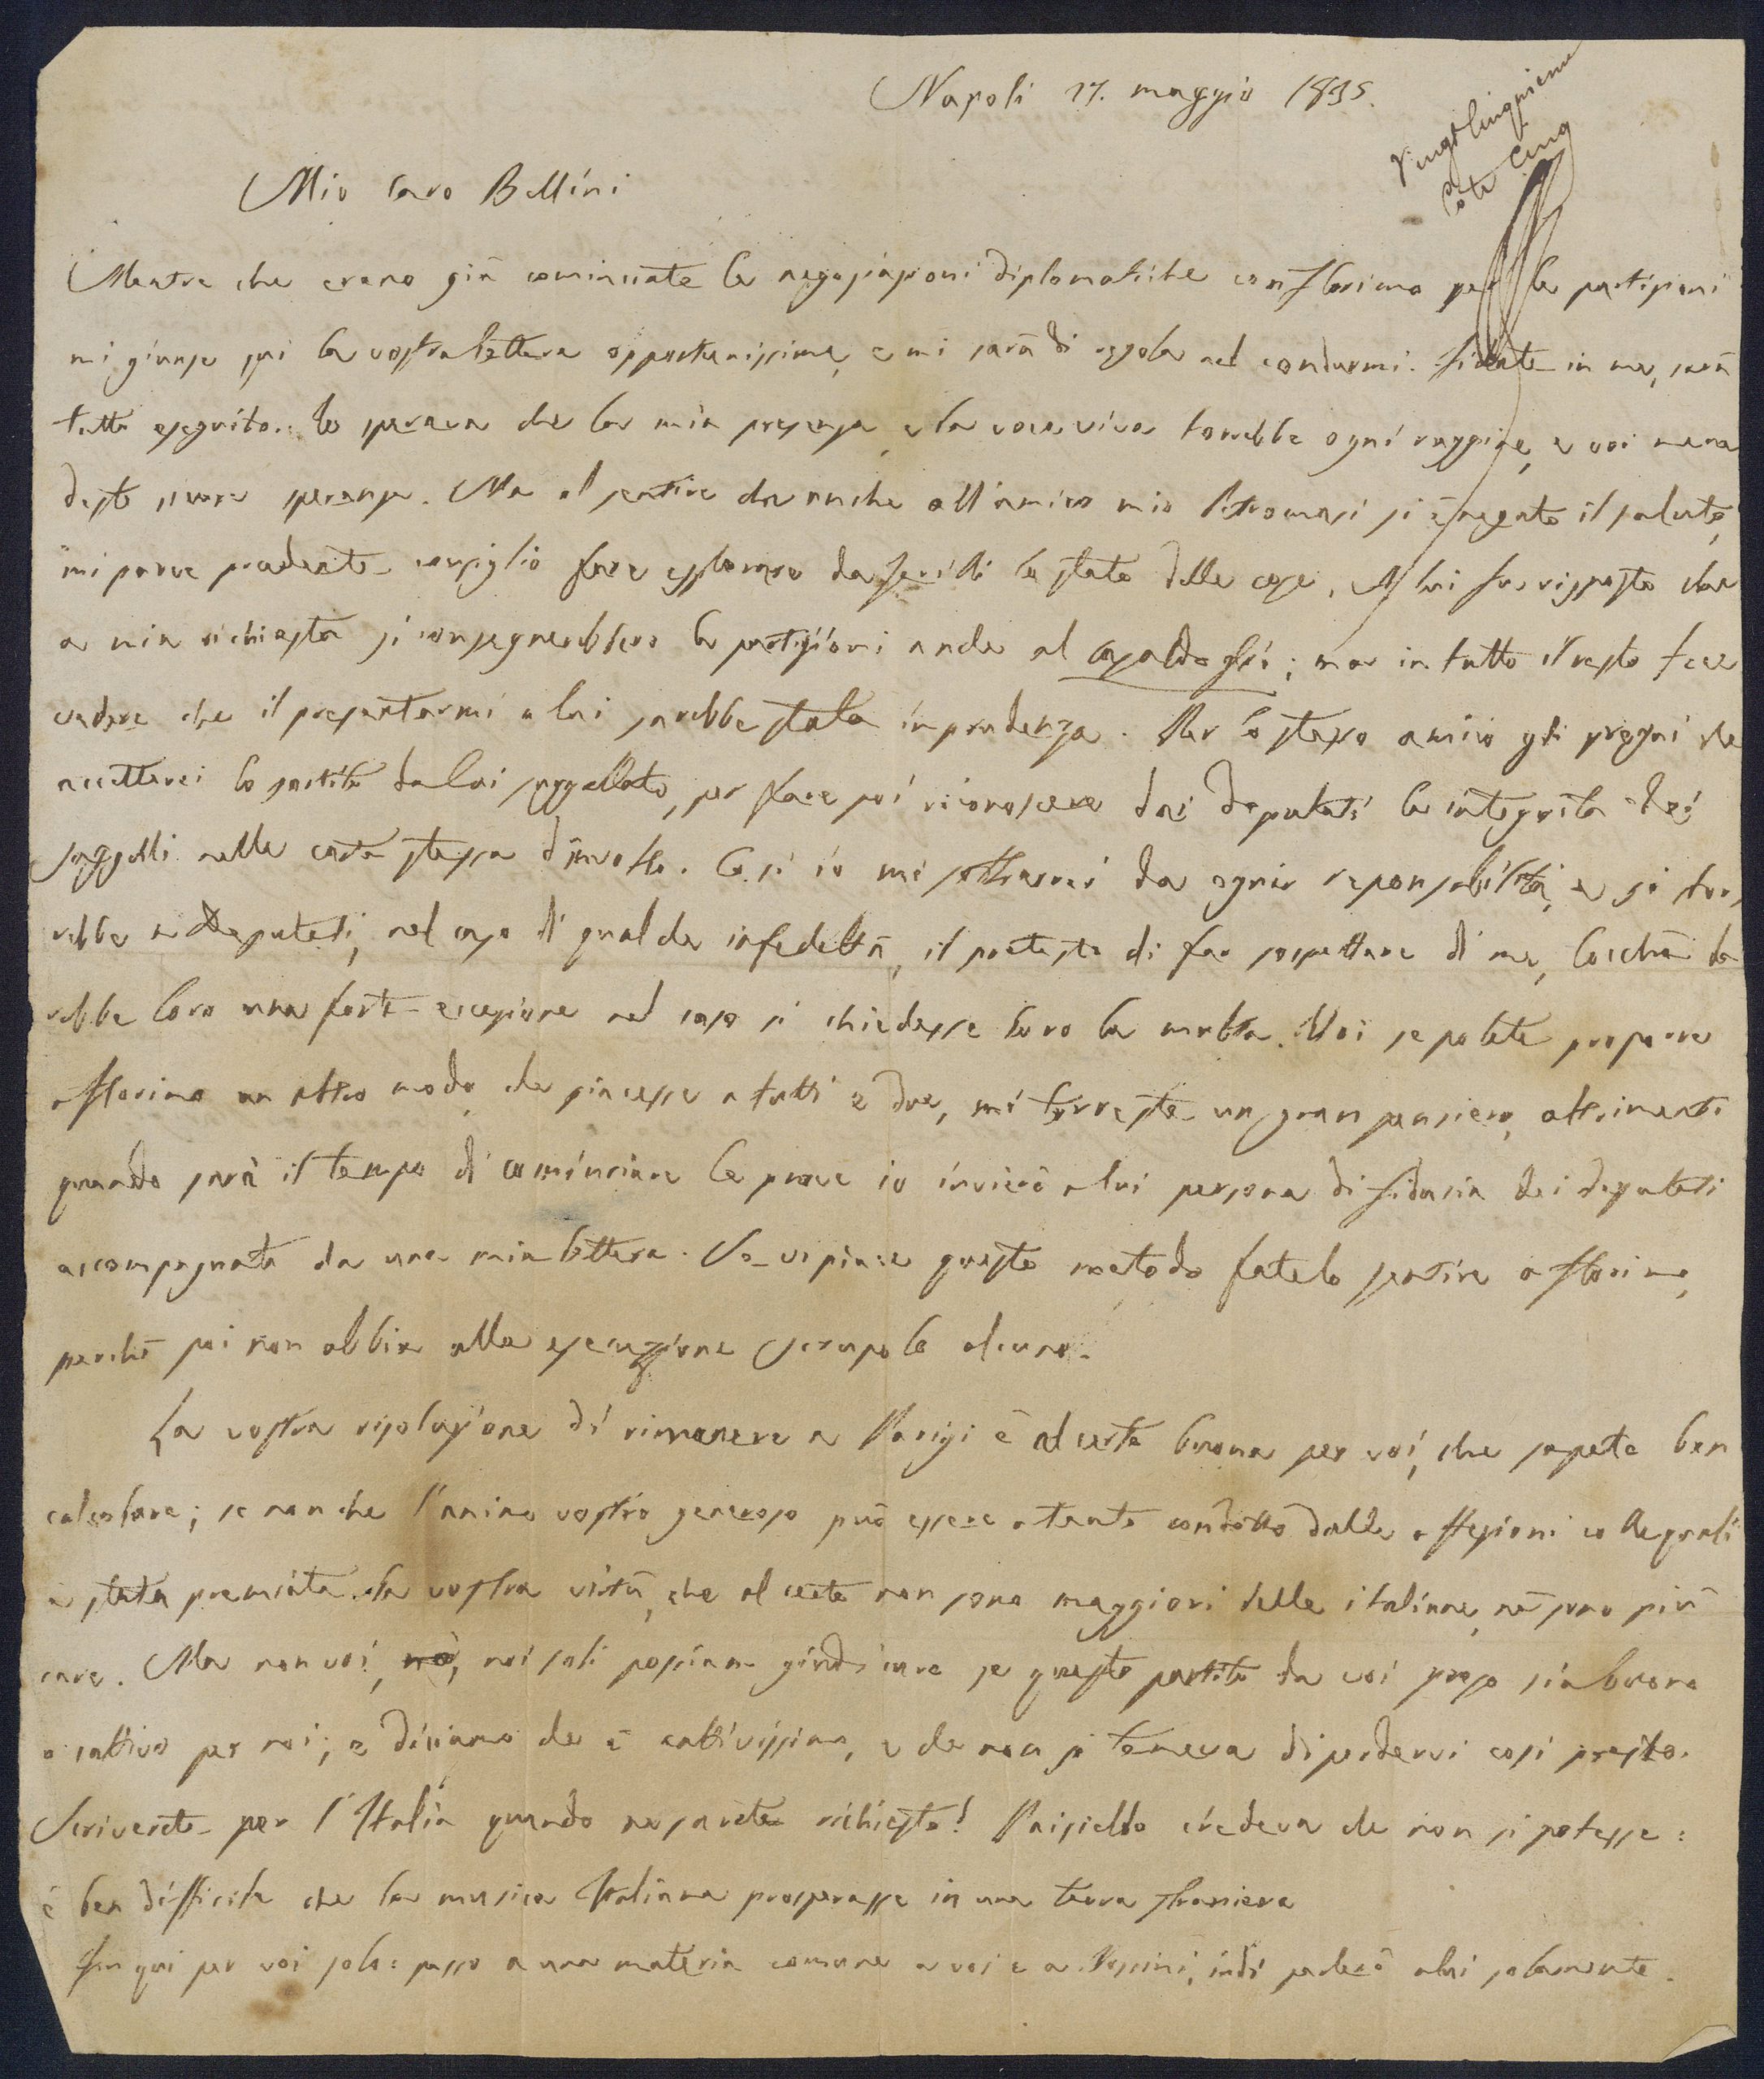 Napoli 17. maggio 1835.
Vingtcinquieme
Cote Cinq
Mio caro Bellini
Mentre che erano già cominciate le negoziazioni diplomatiche con Florimo per le partizioni
mi giunse qui la vostra lettera opportunissima, e mi sarà di regola nel condurmi. Fidate in me, sarà
tutto eseguito. Io sperava che la mia presenza, e la voce viva torrebbe ogni ruggine, e voi me ne
deste sicura speranza. Ma al sentire che anche all'amico mio si è negato il saluto,
mi parve prudente consiglio fare esplorare da lo stato delle cose. A lui fu risposto che
a mia richiesta si consegnerebbero le partizioni anche al ; ma in tutto il resto fece
vedere che il presentarmi a lui sarebbe stata inprudenza. Per lo stesso amico gli pregai che
accetterei lo partito da lui suggellato, per fare poi riconoscere dai deputati la integrità dei
suggelli nella casa stessa di . Così io mi sottrarrei da ogni responsabilità, e si tor,
rebbe a deputati, nel caso di qualche infedeltà, il pretesto di far sospettare di me, locchè da
rebbe loro una forte eccezione nel caso si chiedesse loro la multa. Voi se potete proporre
a Florimo un altro modo, che piacesse a tutti e due, mi torreste un gran pensiero, altrimenti
quando sarà il tempo di cominciare le prove io invierò a lui persona di fiducia dei deputati
accompagnata da una mia lettera. Se vi piace questo metodo fatelo sentire a Florimo,
perchè poi non abbia alla esecuzione scrupolo alcuno.
La vostra risoluzione di rimanere a Parigi è al certo buona per voi, che sapete ben
calcolare; se non che l'animo vostro generoso può essere a tanto condotto dalle affezioni colle quali
è stata premiata la vostra virtù, che al certo non sono maggiori delle italiane, nè sono più
care. Ma non voi, no, noi soli possiam giudicare se questo partito da voi preso sia buono
o cattivo per noi; e diciamo che è cattivissimo, e che non si temeva di perdervi così presto.
Scriverete per l'Italia quando ne sarete richiesto! Paisiello credeva che non si potesse:
è ben difficile che la musica Italiana prosperasse in una terra straniera
Fin qui per voi solo: passo a una materia comune a voi e a Rossini, indi parlerò a lui solamente.